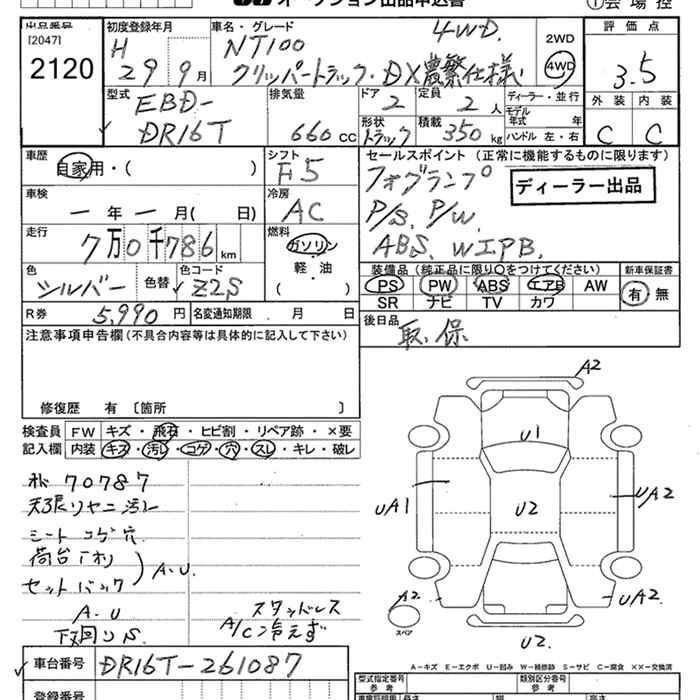 オークション出品申込書
①会場控
出品番号
[2047]
2120
初度登録年月
H 29年 9月
車名・グレード
NT100 4WD.
クリッパートラック・DX農繁仕様
2WD
4WD
評価点
3.5
外装 内装
C C
型式
EBD-
DR16T
排気量
660 cc
ドア
2
定員
2 人
ディーラー・並行
モデル年式 年
形状
トラック
積載
350 kg
ハンドル 左・右
車歴
自家用・( )
シフト
F5
セールスポイント (正常に機能するものに限ります)
フォグランプ
ディーラー出品
P/S. P/W.
ABS. WIPB.
車検
ー年ー月( 日)
冷房
AC
走行
7万0千786 km
燃料
ガソリン
・
軽・油
( )
色
シルバー
色替
色コード
Z2S
装備品 (純正品に限り○をつけてください)
PS PW ABS エアB AW
SR ナビ TV カワ
新車保証書
有・無
R券 5,990 円
名変通知期限 . 月 日
後日品
取.保
注意事項申告欄(不具合内容等は具体的に記入して下さい)
修復歴 有 〔箇所 〕
検査員記入欄
FW キズ・飛石・ヒビ割・リペア跡・×要
内装 キズ・汚レ・コゲ・穴・スレ・キレ・破レ
70787
天張リヤニ汚レ
シート コゲ穴
荷台
セットバック
A.U.
A.U
下回りS
スタッドレス
A/C冷えず
A2
U1
UA1
U2
UA2
A2
スペア
UA2
U2.
A-キズ E-エクボ U-凹み W-補修跡 S-サビ C-腐食 XX-交換済
車台番号
DR16T-261087
型式指定番号
参考
類別区分番号
参考
登録番号